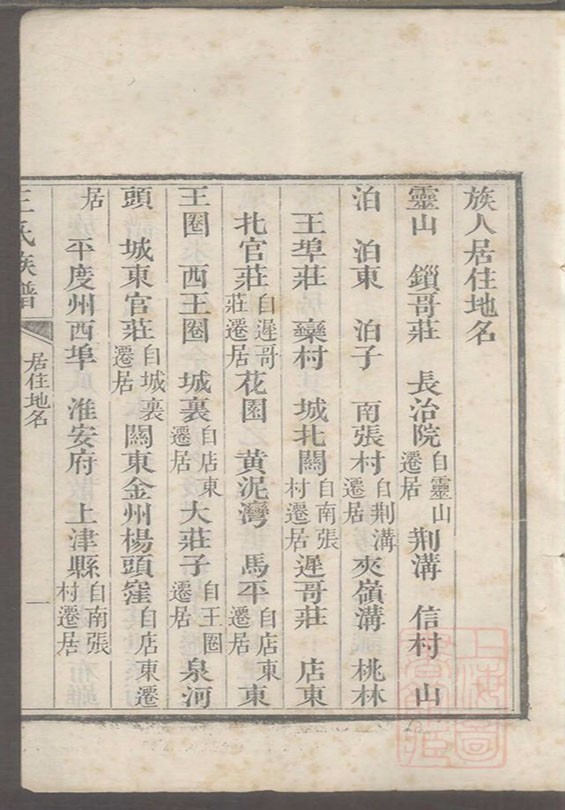 族人居住地名
靈山 鎖哥莊 長治院自靈山遷居 荆溝 信村 山
泊 泊東 泊子 南張村自荆溝遷居 夾嶺溝 桃林
王埠莊 藥村 城北關自南張村遷居 遲哥莊 店東
北官莊自遲哥莊遷居 花園 黃泥灣 馬平自店東遷居 東
王圈 西王圈 城裏自店東遷居 大莊子自王圈遷居 泉河
頭 城東官莊自城裏遷居 關東金州楊頭窪自店東遷
居 平度州西埠 淮安府上津縣自南張村遷居
王氏族譜 居住地名 一